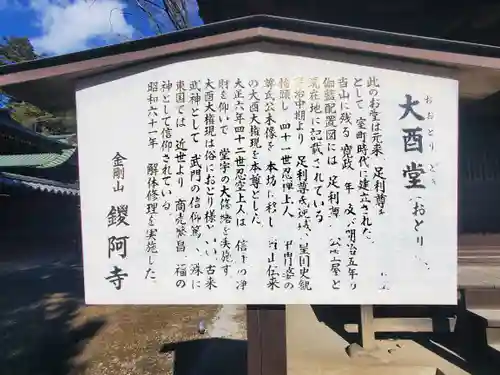 大酉堂
おおとり どう
此のお堂は元来、足利尊
として室町時代に建立された
当山に残る 寛政 年 及 明治五年
伽藍配置図には 足利尊 公霊屋と
現在地に記載されている
中期より 足利尊氏逆賊 皇国史観
擡頭し 四十一世忍禅上人 甲冑姿の
尊氏公木像を 本坊に移し 当山伝来
の大酉大権現を本尊とした
大正六年四十二世忍空上人は 信 の浄
財を仰いで 堂宇の大修繕を実施す
大酉大権現は俗におとり様と いい 古来
武神として 武門の信仰篤 殊に
東国では 近世より 商売繁昌 福の
神として信仰されている
昭和六十一年 解体修理を実施した。
金剛山 鑁阿寺